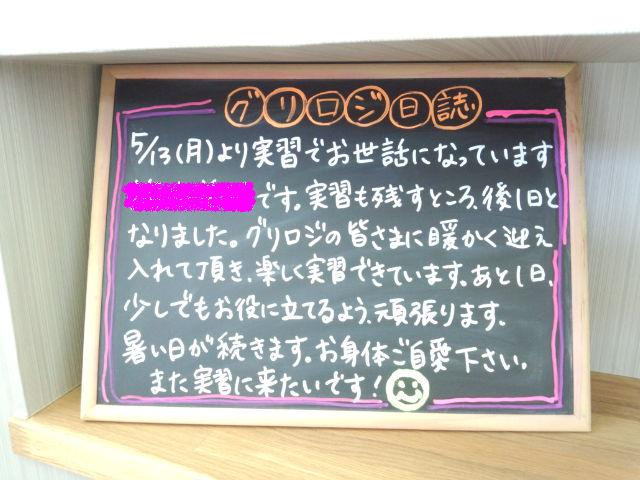 グリロジ日誌
5/13(月)より実習でお世話になっています
です。実習も残すところ、後1日と
なりました。グリロジの皆さまに暖かく迎え
入れて頂き、楽しく実習できています。あと1日、
少しでもお役に立てるよう、頑張ります。
暑い日が続きます。お身体ご自愛下さい。
また実習に来たいです!